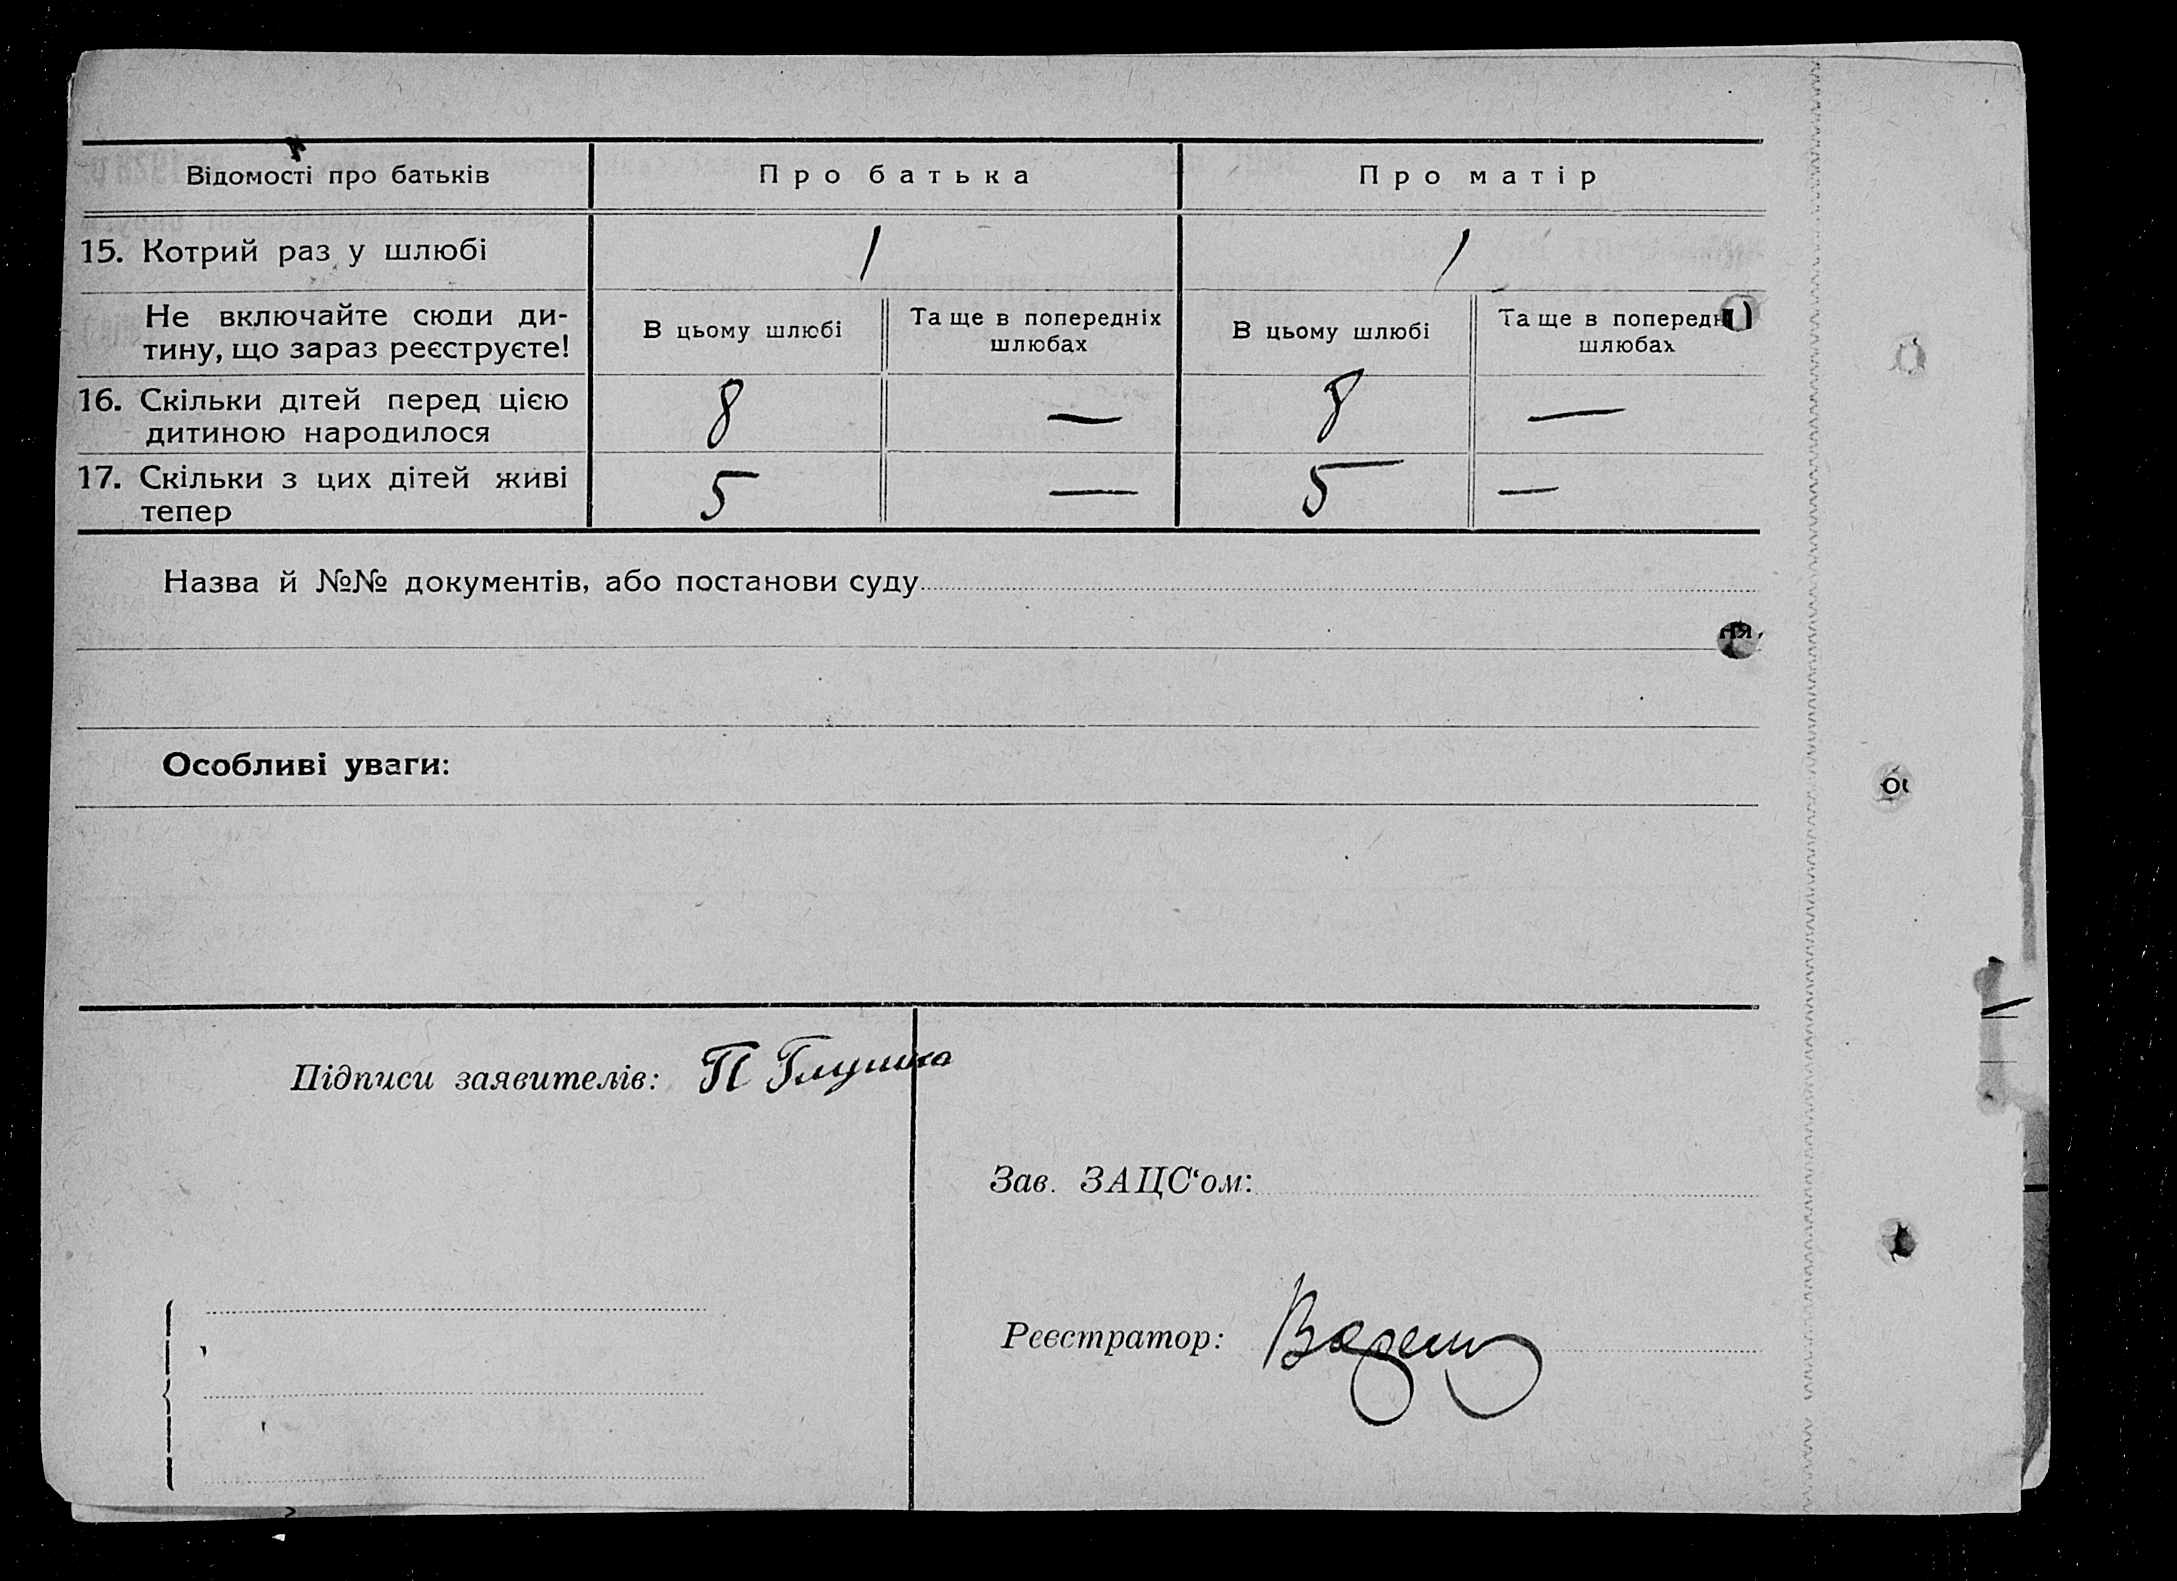 Відомості про батьків Про батька Про матір
15. Котрий раз у шлюбі 1 1
Не включайте сюди ди-
тину, що зараз реєструєте!
В цьому шлюбі Та ще в попередніх В цьому шлюбі Та ще в попередн
шлюбах шлюбах
16. Скільки дітей перед цією
дитиною народилося 8 — 8 —
17. Скільки з цих дітей живі
тепер 5 — 5 —
Назва й №№ документів, або постанови суду
ня
Особливі уваги:
Підписи заявителів: П
Зав. ЗАЦС‘ом:
Реєстратор: